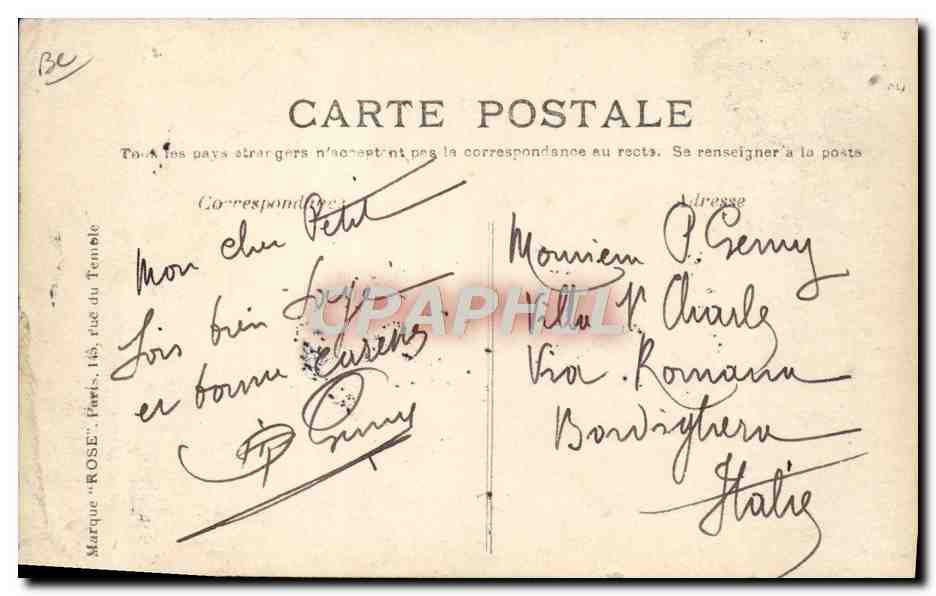 BC
CARTE POSTALE
Tous les pays étrangers n'acceptent pas la correspondance au recto. Se renseigner à la poste
Correspondance
Mon cher Petit
Sois bien sage
et bonne
Gemy
Adresse
Monsieur P. Gemy
Villa St Charles
Via Romana
Bordighera
Italie
Marque "ROSE". Paris, 145, rue du Temple
CPAPHIL